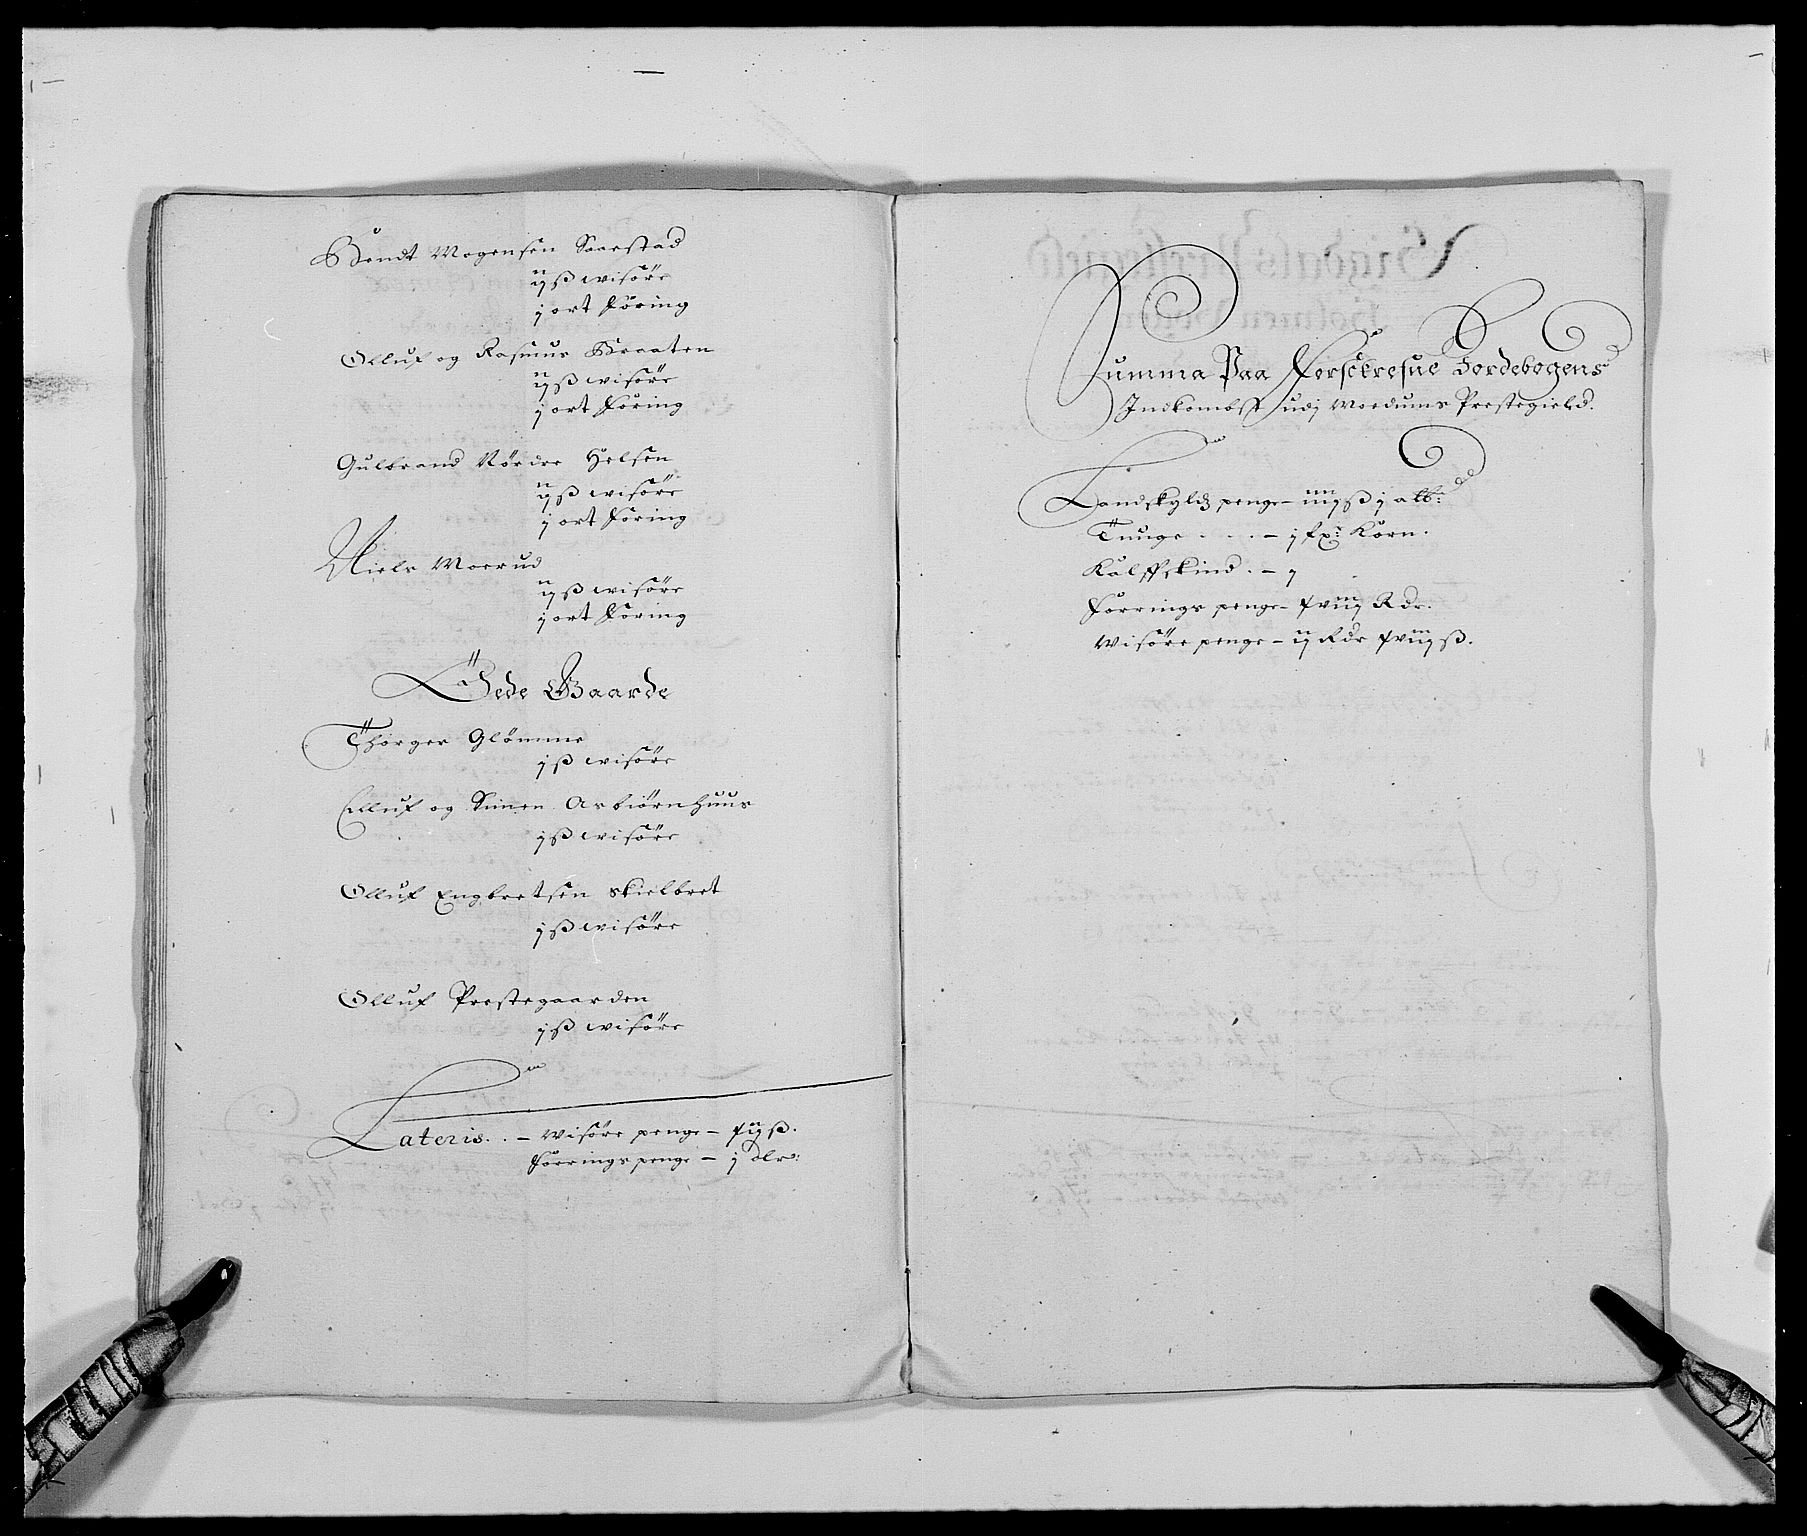 Bendt Mogensen Saarstad
ij ß wisöre
j ort föring
Olluf og Rasmus Braaten
ij ß wisöre
j ort föring
Gulbrand Nördre Helsen
ij ß wisöre
j ort föring
Niels Moerud
ij ß wisöre
j ort föring
Öede Gaarde
Thorger Glömme
j ß wisöre
Olluf og Simen Asbiörnhuus
j ß wisöre
Olluf Engbretsen Skielbret
j ß wisöre
Olluf Prestegaarden
j ß wisöre
Lateris . . – Wisöre penge – xij ß.
förrings penge – j dlr:
Summa Paa Jordebogens
Indkombst udj Moedums Prestegield.
Landskyldz penge – iiij ß j alb:
Tunge . . . – j fx: Korn.
Kalffskind . – j
förrings penge – xviij Rdr.
Wisöre penge – ij Rdr xviij ß.